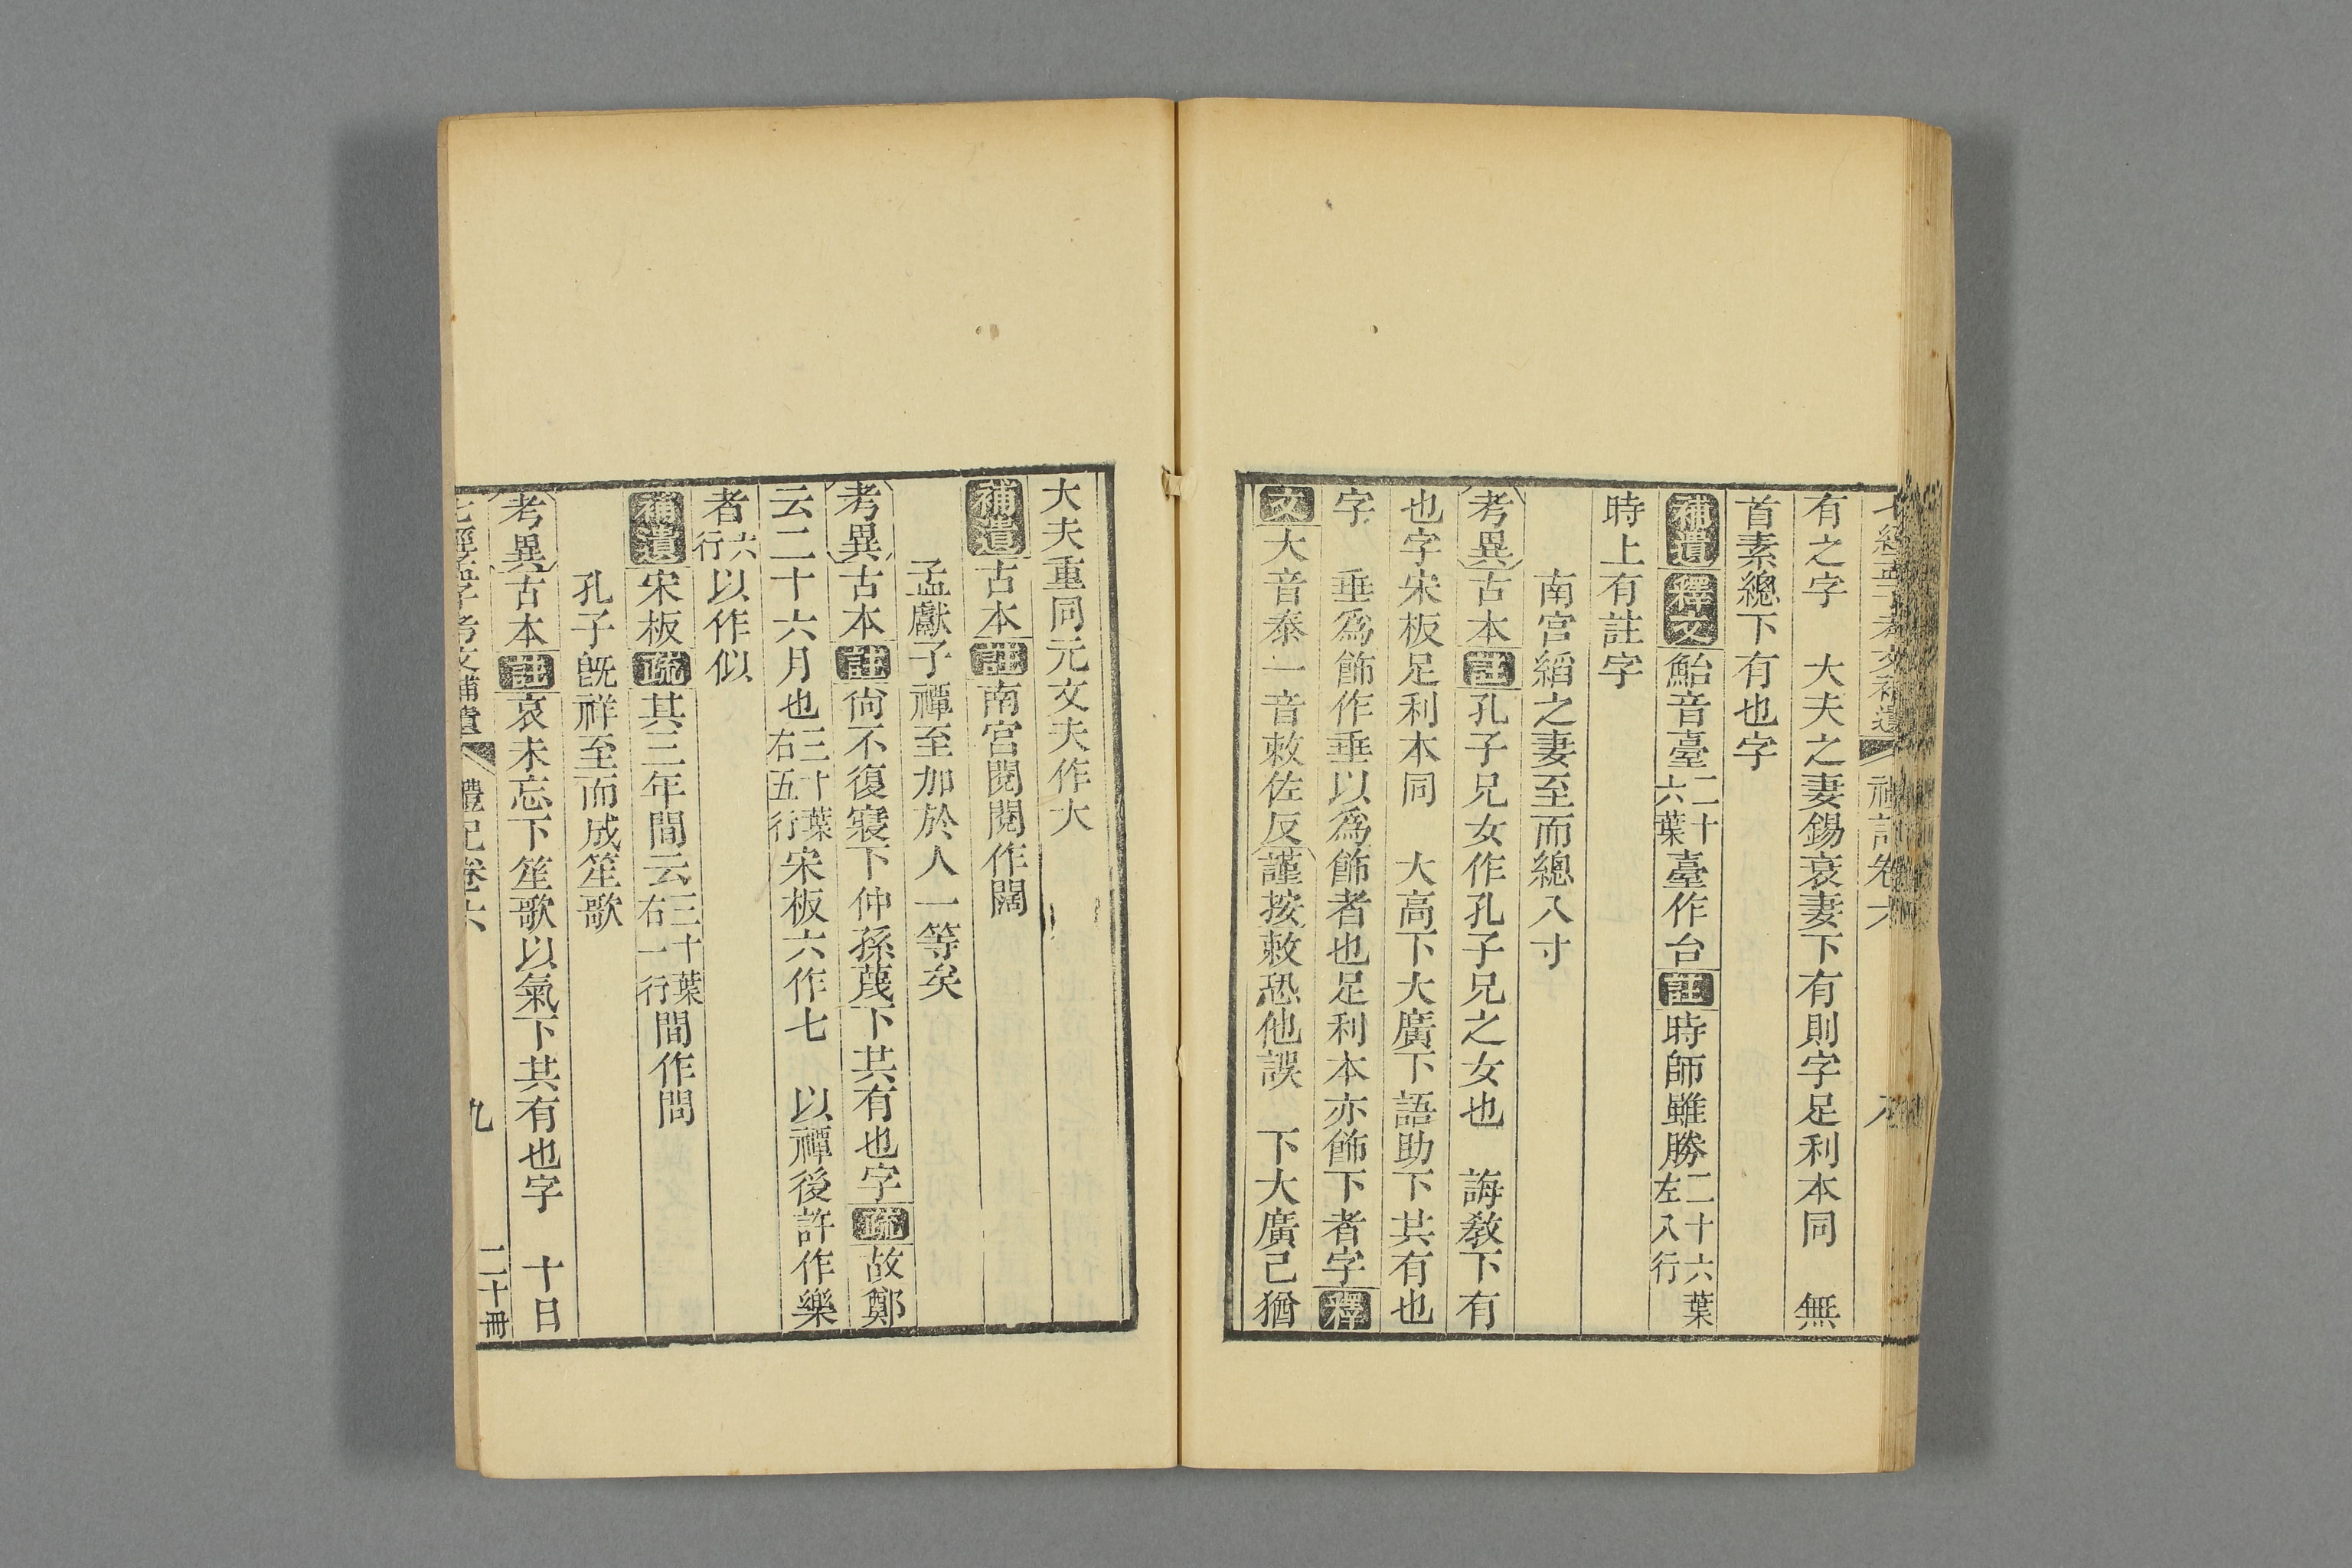 七經孟子考文補遺 禮記卷六 八
有之字　大夫之妻錫衰妻下有則字足利本同　無
首素總下有也字
補遺釋文鮐音臺二十六葉臺作台註時師雖勝二十六葉左八行
時上有註字
南宮縚之妻至而總八寸
考異古本註孔子兄女作孔子兄之女也　誨教下有
也字宋板足利本同　大高下大廣下語助下共有也
字　垂爲飾作垂以爲飾者也足利本亦飾下者字釋
文大音泰一音敕佐反謹按敕恐他誤　下大廣己猶
大夫重同元文夫作大
補遺古本註南宮閱閱作闊
孟獻子禫至加於人一等矣
考異古本註尙不復寢下仲孫蔑下共有也字疏故鄭
云二十六月也三十葉右五行宋板六作七　以禫後許作樂
者六行以作似
補遺宋板疏其三年間云三十葉右一行間作問
孔子旣祥至而成笙歌
考異古本註哀未忘下笙歌以氣下共有也字　十日
七經孟子考文補遺 禮記卷六 九 二十冊